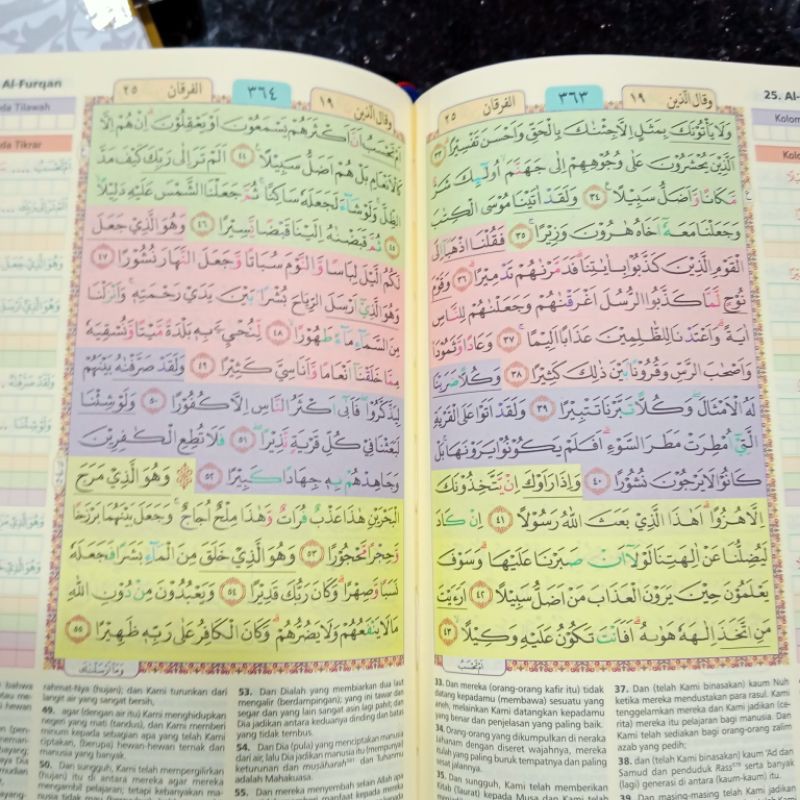 25. Al-
٢٥ الفرقان
٣٦٣
١٩ وقال الذين
وَلَا يَأْتُوْنَكَ بِمَثَلٍ اِلَّا جِئْنٰكَ بِالْحَقِّ وَاَحْسَنَ تَفْسِيْرًا ۗ ٣٣
اَلَّذِيْنَ يُحْشَرُوْنَ عَلٰى وُجُوْهِهِمْ اِلٰى جَهَنَّمَۙ اُولٰۤىِٕكَ شَرٌّ
مَّكَانًا وَّاَضَلُّ سَبِيْلًا ٣٤ وَلَقَدْ اٰتَيْنَا مُوْسَى الْكِتٰبَ
وَجَعَلْنَا مَعَهٗٓ اَخَاهُ هٰرُوْنَ وَزِيْرًا ۚ ٣٥ فَقُلْنَا اذْهَبَآ اِلَى
الْقَوْمِ الَّذِيْنَ كَذَّبُوْا بِاٰيٰتِنَاۗ فَدَمَّرْنٰهُمْ تَدْمِيْرًا ۗ ٣٦ وَقَوْمَ
نُوْحٍ لَّمَّا كَذَّبُوا الرُّسُلَ اَغْرَقْنٰهُمْ وَجَعَلْنٰهُمْ لِلنَّاسِ
اٰيَةًۗ وَاَعْتَدْنَا لِلظّٰلِمِيْنَ عَذَابًا اَلِيْمًا ۚ ٣٧ وَعَادًا وَّثَمُوْدَا۟
وَاَصْحٰبَ الرَّسِّ وَقُرُوْنًاۢ بَيْنَ ذٰلِكَ كَثِيْرًا ٣٨ وَكُلًّا ضَرَبْنَا
لَهُ الْاَمْثَالَۖ وَكُلًّا تَبَّرْنَا تَتْبِيْرًا ٣٩ وَلَقَدْ اَتَوْا عَلَى الْقَرْيَةِ
الَّتِيْٓ اُمْطِرَتْ مَطَرَ السَّوْءِۗ اَفَلَمْ يَكُوْنُوْا يَرَوْنَهَاۚ بَلْ
كَانُوْا لَا يَرْجُوْنَ نُشُوْرًا ٤٠ وَاِذَا رَاَوْكَ اِنْ يَّتَّخِذُوْنَكَ
اِلَّا هُزُوًاۗ اَهٰذَا الَّذِيْ بَعَثَ اللّٰهُ رَسُوْلًا ٤١ اِنْ كَادَ
لَيُضِلُّنَا عَنْ اٰلِهَتِنَا لَوْلَآ اَنْ صَبَرْنَا عَلَيْهَاۗ وَسَوْفَ
يَعْلَمُوْنَ حِيْنَ يَرَوْنَ الْعَذَابَ مَنْ اَضَلُّ سَبِيْلًا ٤٢ اَرَءَيْتَ
مَنِ اتَّخَذَ اِلٰهَهٗ هَوٰىهُۗ اَفَاَنْتَ تَكُوْنُ عَلَيْهِ وَكِيْلًا ۙ ٤٣
33. Dan mereka (orang-orang kafir itu) tidak
datang kepadamu (membawa) sesuatu yang
aneh, melainkan Kami datangkan kepadamu
yang benar dan penjelasan yang paling baik.
34. Orang-orang yang dikumpulkan di neraka
Jahanam dengan diseret wajahnya, mereka
itulah yang paling buruk tempatnya dan paling
sesat jalannya.
35. Dan sungguh, Kami telah memberikan
Kitab (Taurat) kepada Musa dan Kami telah
37. Dan (telah Kami binasakan) kaum Nuh
ketika mereka mendustakan para rasul. Kami
tenggelamkan mereka dan Kami jadikan (ce-
rita) mereka itu pelajaran bagi manusia. Dan
Kami telah sediakan bagi orang-orang zalim
azab yang pedih;
38. dan (telah Kami binasakan) kaum 'Ad dan
Samud dan penduduk Rass serta banyak
(lagi) generasi di antara (kaum-kaum) itu.
39. Dan masing-masing telah Kami jadikan
Al-Furqan
٢٥ الفرقان
٣٦٤
١٩ وقال الذين
اَمْ تَحْسَبُ اَنَّ اَكْثَرَهُمْ يَسْمَعُوْنَ اَوْ يَعْقِلُوْنَۗ اِنْ هُمْ اِلَّا
كَالْاَنْعَامِ بَلْ هُمْ اَضَلُّ سَبِيْلًا ۚ ٤٤ اَلَمْ تَرَ اِلٰى رَبِّكَ كَيْفَ مَدَّ
الظِّلَّۚ وَلَوْ شَاۤءَ لَجَعَلَهٗ سَاكِنًاۚ ثُمَّ جَعَلْنَا الشَّمْسَ عَلَيْهِ دَلِيْلًا ۙ
٤٥ ثُمَّ قَبَضْنٰهُ اِلَيْنَا قَبْضًا يَّسِيْرًا ٤٦ وَهُوَ الَّذِيْ جَعَلَ
لَكُمُ الَّيْلَ لِبَاسًا وَّالنَّوْمَ سُبَاتًا وَّجَعَلَ النَّهَارَ نُشُوْرًا ٤٧
وَهُوَ الَّذِيْٓ اَرْسَلَ الرِّيٰحَ بُشْرًاۢ بَيْنَ يَدَيْ رَحْمَتِهٖۚ وَاَنْزَلْنَا
مِنَ السَّمَاۤءِ مَاۤءً طَهُوْرًا ۙ ٤٨ لِّنُحْيِ َۧ بِهٖ بَلْدَةً مَّيْتًا وَّنُسْقِيَهٗ
مِمَّا خَلَقْنَآ اَنْعَامًا وَّاَنَاسِيَّ كَثِيْرًا ٤٩ وَلَقَدْ صَرَّفْنٰهُ بَيْنَهُمْ
لِيَذَّكَّرُوْاۖ فَاَبٰىٓ اَكْثَرُ النَّاسِ اِلَّا كُفُوْرًا ٥٠ وَلَوْ شِئْنَا
لَبَعَثْنَا فِيْ كُلِّ قَرْيَةٍ نَّذِيْرًا ۖ ٥١ فَلَا تُطِعِ الْكٰفِرِيْنَ
وَجَاهِدْهُمْ بِهٖ جِهَادًا كَبِيْرًا ٥٢ ۞ وَهُوَ الَّذِيْ مَرَجَ
الْبَحْرَيْنِ هٰذَا عَذْبٌ فُرَاتٌ وَّهٰذَا مِلْحٌ اُجَاجٌۚ وَجَعَلَ بَيْنَهُمَا بَرْزَخًا
وَّحِجْرًا مَّحْجُوْرًا ٥٣ وَهُوَ الَّذِيْ خَلَقَ مِنَ الْمَاۤءِ بَشَرًا فَجَعَلَهٗ
نَسَبًا وَّصِهْرًاۗ وَكَانَ رَبُّكَ قَدِيْرًا ٥٤ وَيَعْبُدُوْنَ مِنْ دُوْنِ اللّٰهِ
مَا لَا يَنْفَعُهُمْ وَلَا يَضُرُّهُمْۗ وَكَانَ الْكَافِرُ عَلٰى رَبِّهٖ ظَهِيْرًا ٥٥
وَمَآ اَرْسَلْنٰكَ
rahmat-Nya (hujan); dan Kami turunkan dari
langit air yang sangat bersih,
49. agar (dengan air itu) Kami menghidupkan
negeri yang mati (tandus), dan Kami memberi
minum kepada sebagian apa yang telah Kami
ciptakan, (berupa) hewan-hewan ternak dan
manusia yang banyak.
50. Dan sungguh, Kami telah mempergilirkan
(hujan) itu di antara mereka agar mereka
mengambil pelajaran; tetapi kebanyakan ma-
53. Dan Dialah yang membiarkan dua laut
mengalir (berdampingan); yang ini tawar dan
segar dan yang lain sangat asin lagi pahit; dan
Dia jadikan antara keduanya dinding dan batas
yang tidak tembus.
54. Dan Dia (pula) yang menciptakan manusia
dari air, lalu Dia jadikan manusia itu (mempunyai)
keturunan dan muṣāharah dan Tuhanmu
adalah Mahakuasa.
55. Dan mereka menyembah selain Allah apa